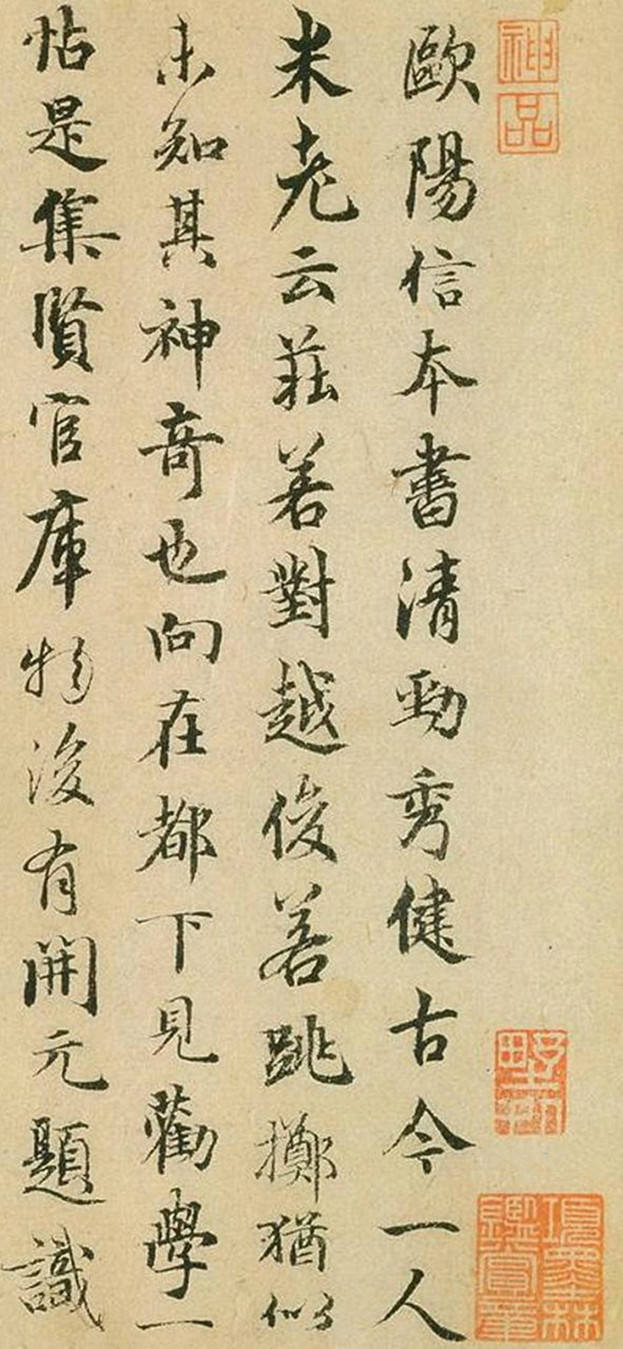 神品
歐陽信本書清勁秀健古今一人
米老云莊若對越俊若跳擲猶似
未知其神奇也向在都下見勸學一
帖是集賢官庫物後有開元題識
項墨林鑑賞章